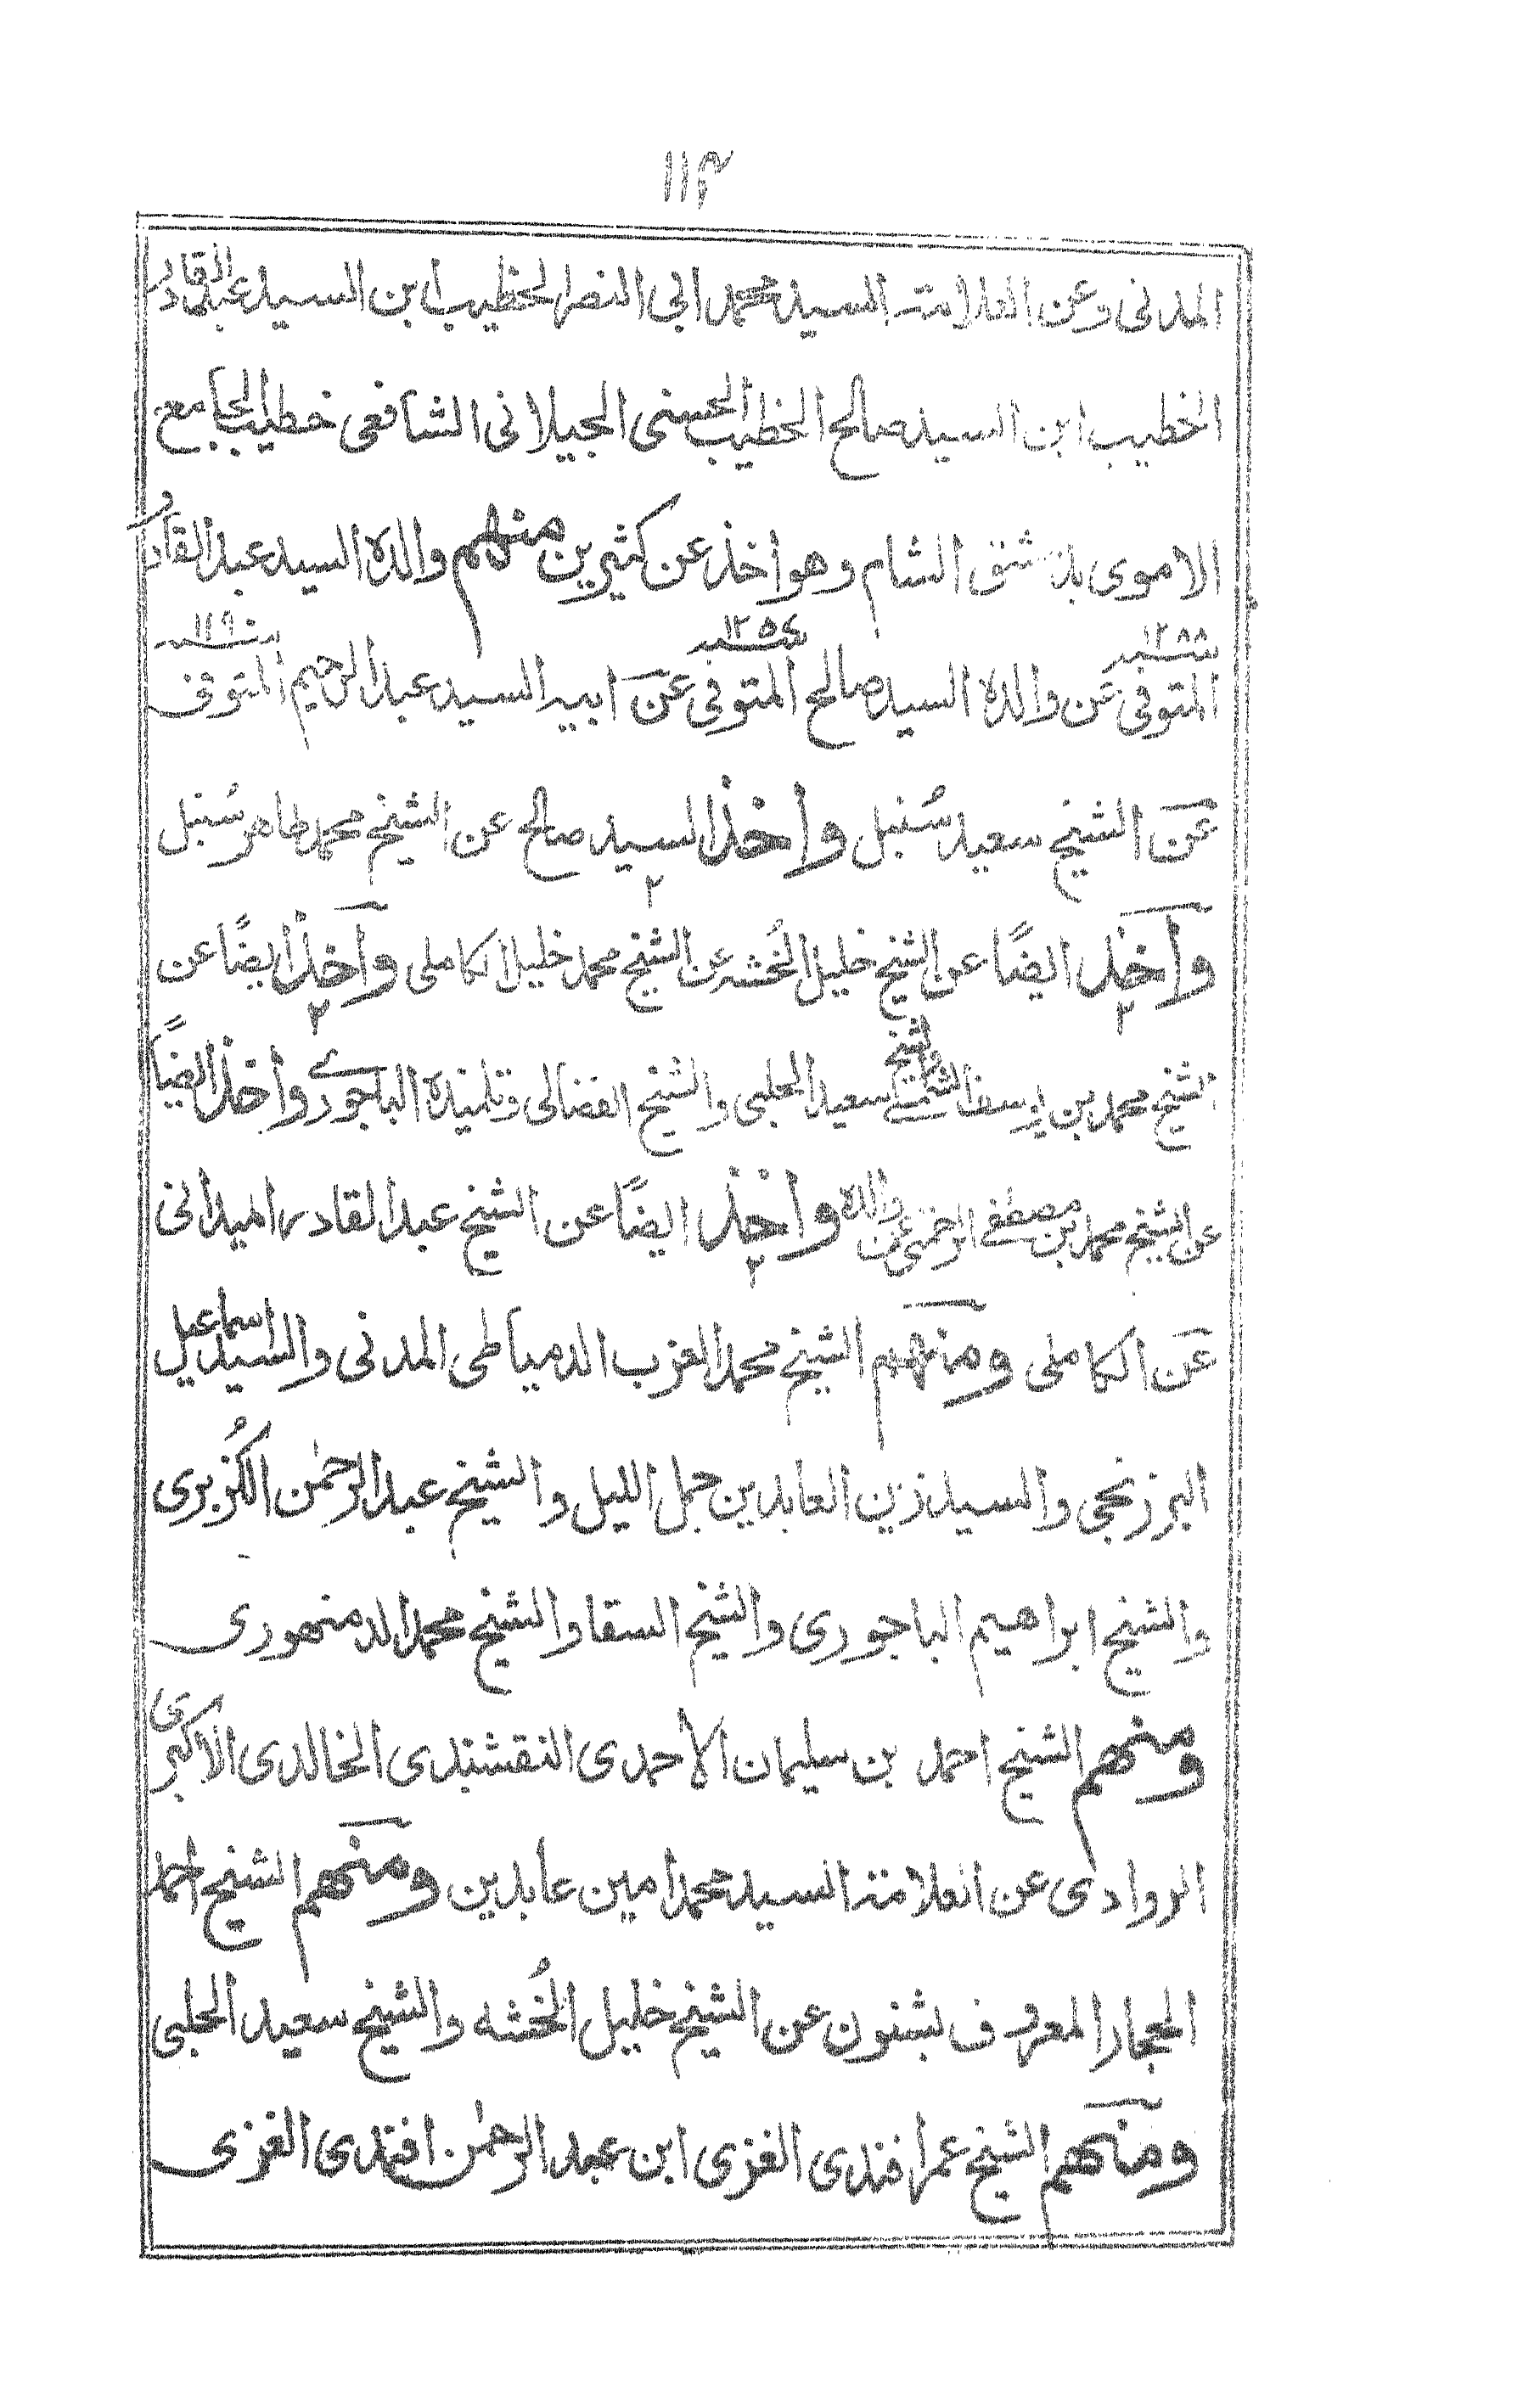 ١١٣
المدنى وعن العلامة السيد محمد ابى النصر الخطيب ابن السيد عبد القادر
الخطيب ابن السيد صالح الخطيب الحسنى الجيلانى الشافعى خطيب الجامع
الاموى بدمشق الشام وهو أخذ عن كثيرين منهم والده السيد عبد القادر
المتوفى سنة ١٢٨٨ عن والده السيد صالح المتوفى سنة ١٢٥٤ عن ابيه السيد عبد الرحيم المتوفى سنة ١١٩٠
عن الشيخ سعيد سُنبل وأخذ السيد صالح عن الشيخ محمد طاهر سُنبل
وأخذ ٢ ايضًا عن الشيخ خليل الخُشه عن الشيخ محمد خليل الكاملى وأخذ ٢ ايضًا عن
الشيخ محمد بن يوسف الشمسى والشيخ سعيد الحلبى والشيخ الفضالى وتلميذه الباجورے وأخذ ايضًا
عن الشيخ محمد بن مصطفے الرحمتى عن والده وأخذ ٢ ايضًا عن الشيخ عبد القادر الميدانى
عن الكاملى ومنهم الشيخ محمد العزب الدمياطى المدنى والسيد اسماعيل
البرزنجى والسيد زين العابدين جمل الليل والشيخ عبد الرحمٰن الكُزبرى
والشيخ ابراهيم الباجورى والشيخ السقا والشيخ محمد الدمنهورى
ومنهم الشيخ احمد بن سليمان الأحمدى النقشبندى الخالدى الاكبرى
الروادى عن العلامة السيد محمد امين عابدين ومنهم الشيخ احمد
الحجار المعروف بشنون عن الشيخ خليل الخُشه والشيخ سعيد الحلبى
ومنهم الشيخ عمر افندى الغزى ابن عبد الرحمٰن افندى الغزى